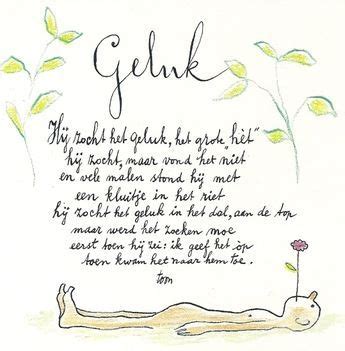 Geluk
Hij zocht het geluk, het grote "hèt"
hij zocht, maar vond het niet
en vele malen stond hij met
een kluitje in het riet
hij zocht het geluk in het dal, aan de top
maar werd het zoeken moe
eerst toen hij zei: ik geef het op
toen kwam het naar hem toe.
toon